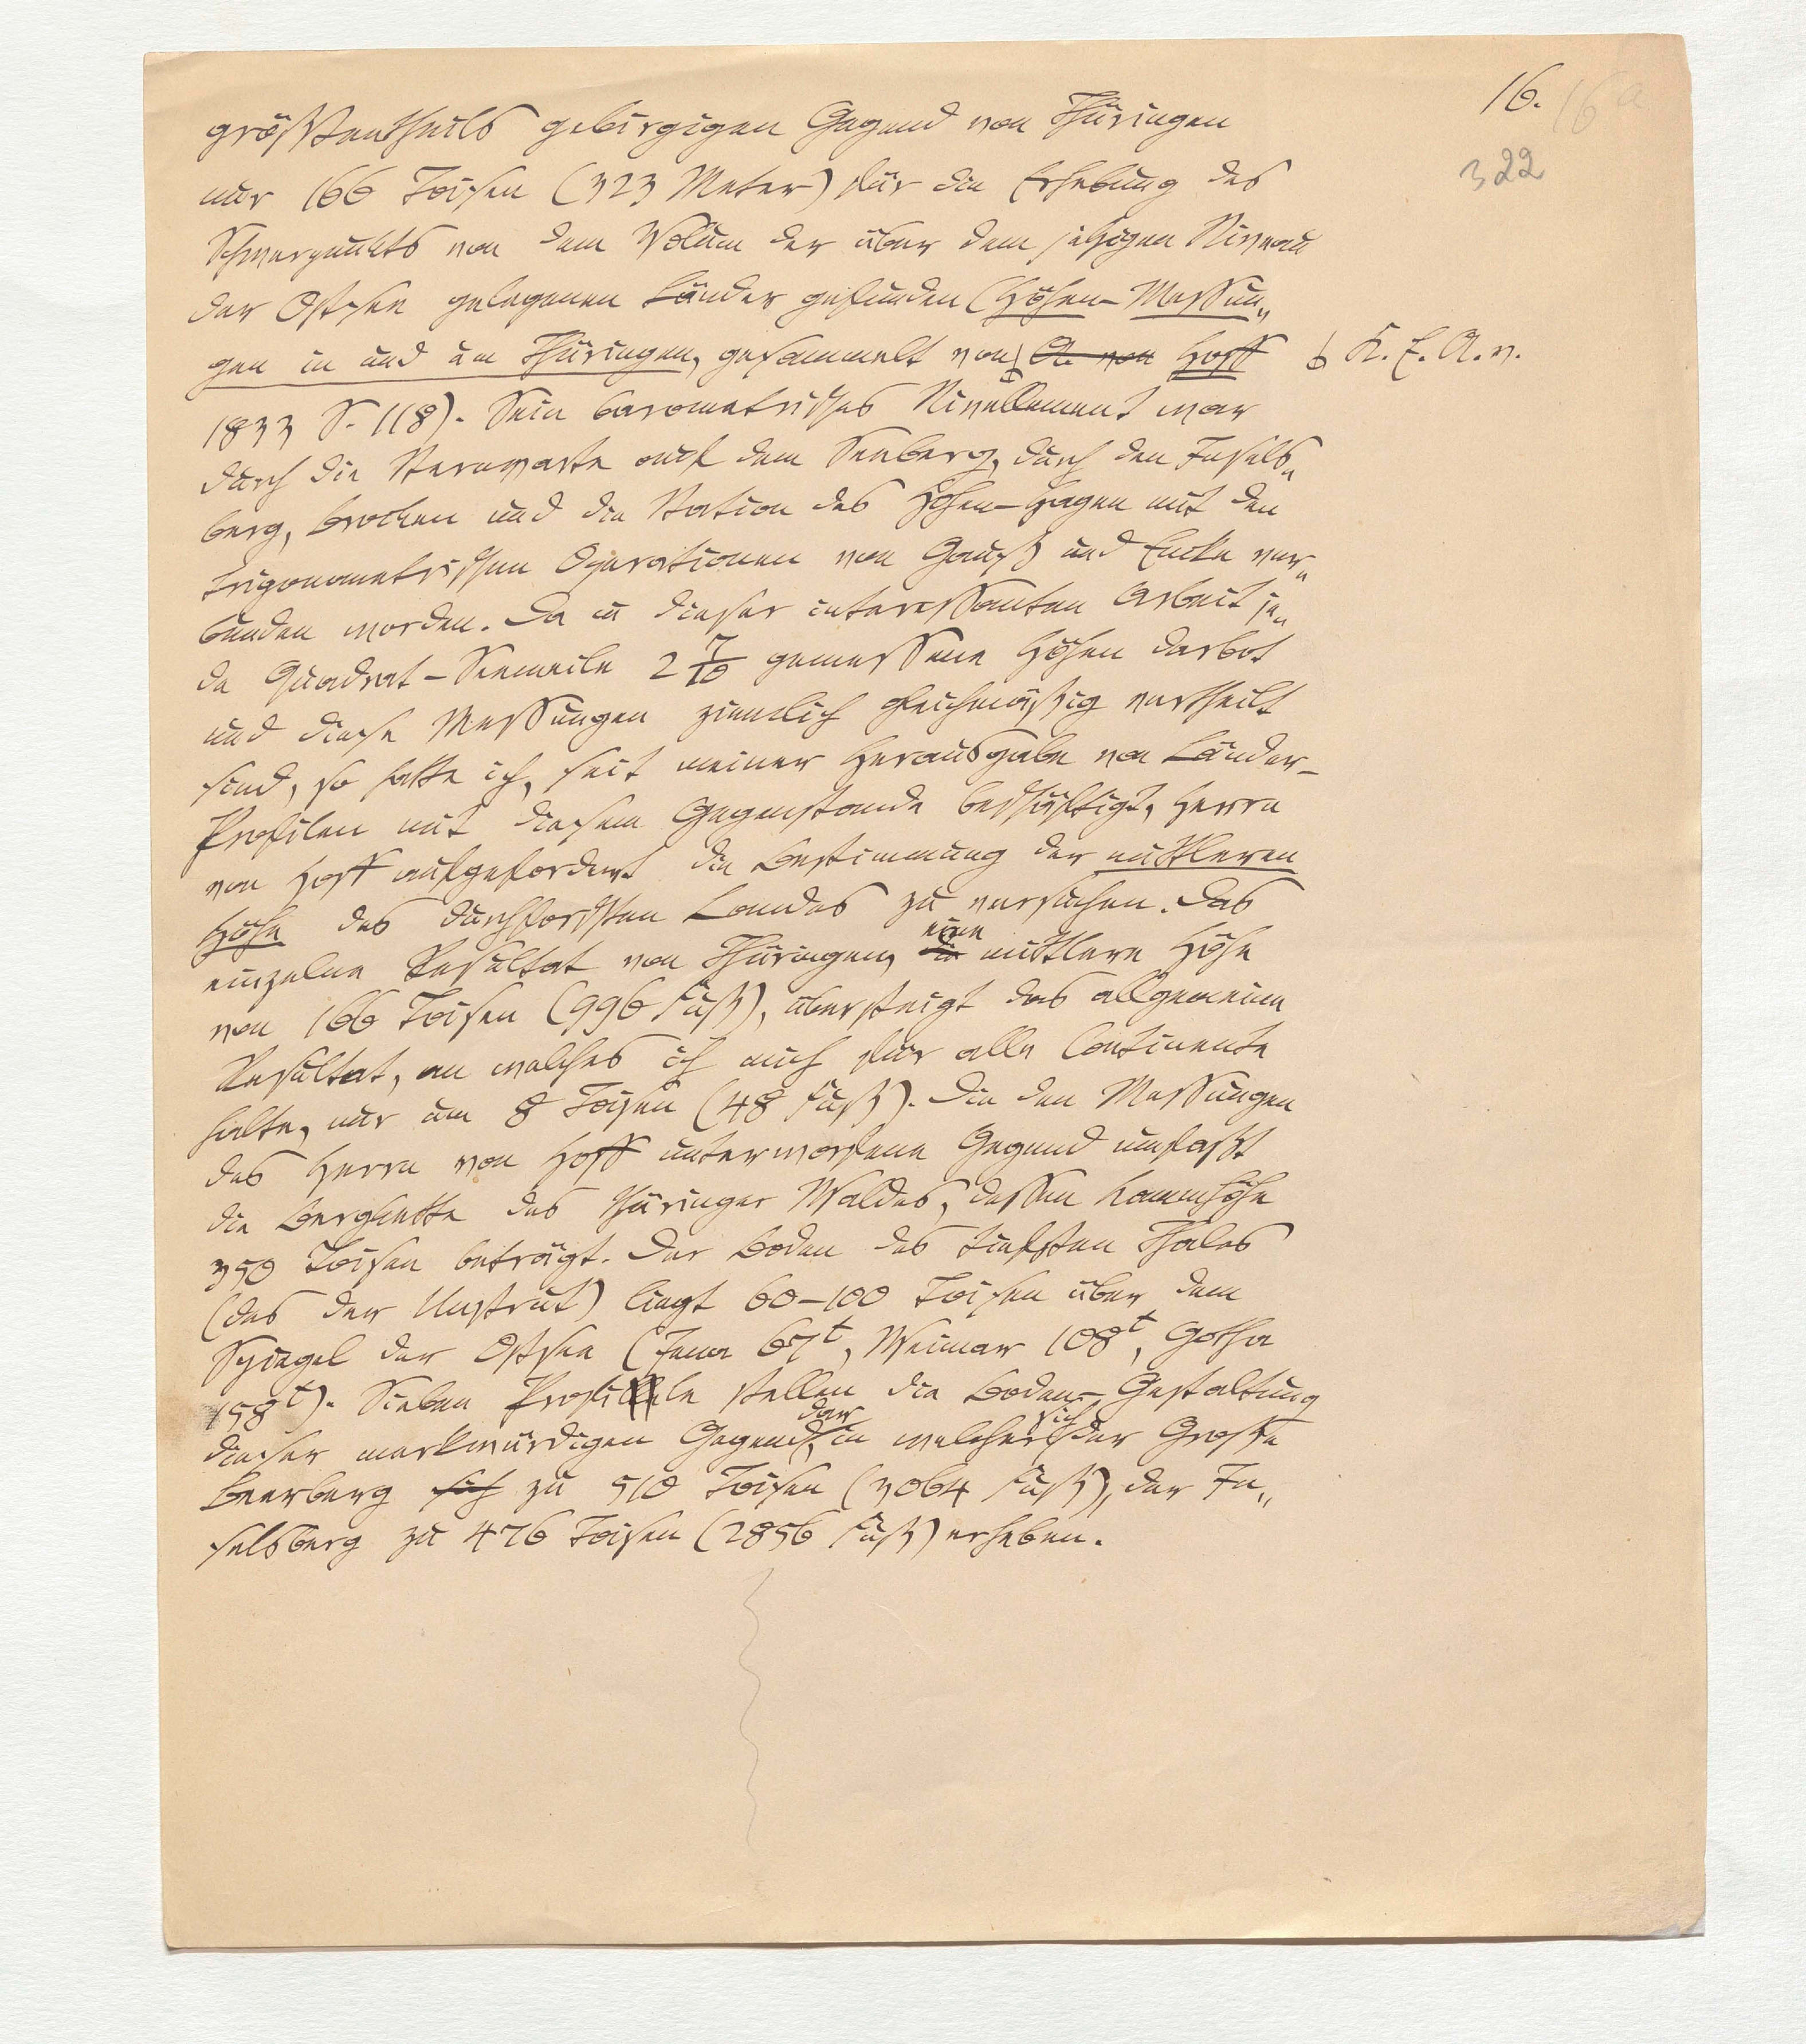 16. 16a
322
größtentheils gebirgigen Gegend von Thüringen
nur 166 Toisen (323 Meter) für die Erhebung des
Schwerpunkts von dem Volum der über dem jetzigen Niveau
der Ostsee gelegenen Länder gefunden (Höhen-Messun„
gen in und um Thüringen, gesammelt von A. von Hoff
K. E. A. v.
1833 S. 118). Sein barometrisches Nivellement war
durch die Sternwarte auf dem Seeberg, durch den Insels„
berg, Brocken und die Station des Hohen-Hagen mit den
trigonometrischen Operationen von Gauß und Encke ver„
bunden worden. Da in dieser interessanten Arbeit je„
de Quadrat-Seemeile 2 7/10 gemessene Höhen darbot
und diese Messungen ziemlich gleichmäßig vertheilt
sind, so hatte ich, seit meiner Herausgabe von Länder-
Profilen mit diesem Gegenstande beschäftigt, Herrn
von Hoff aufgefordert die Bestimmung der mittleren
Höhe des durchforschten Landes zu versuchen. Das
einzelne Resultat von Thüringen, die eine mittlere Höhe
von 166 Toisen (996 Fuß), übersteigt das allgemeine
Resultat, an welches ich mich für alle Continente
halte, nur um 8 Toisen (48 Fuß). Die den Messungen
des Herrn von Hoff unterworfene Gegend umfaßt
die Bergkette des Thüringer Waldes, dessen Kammhöhe
350 Toisen beträgt. Der Boden des tiefsten Thales
(des der Unstrut) liegt 60-100 Toisen über dem
Spiegel der Ostsee (Jena 67t, Weimar 108t, Gotha
158t). Sieben Profile stellen die Boden-Gestaltung
dieser merkwürdigen Gegend dar, in welcher sich der Große
Beerberg sich zu 510 Toisen (3064 Fuß), der In„
selsberg zu 476 Toisen (2856 Fuß) erheben.